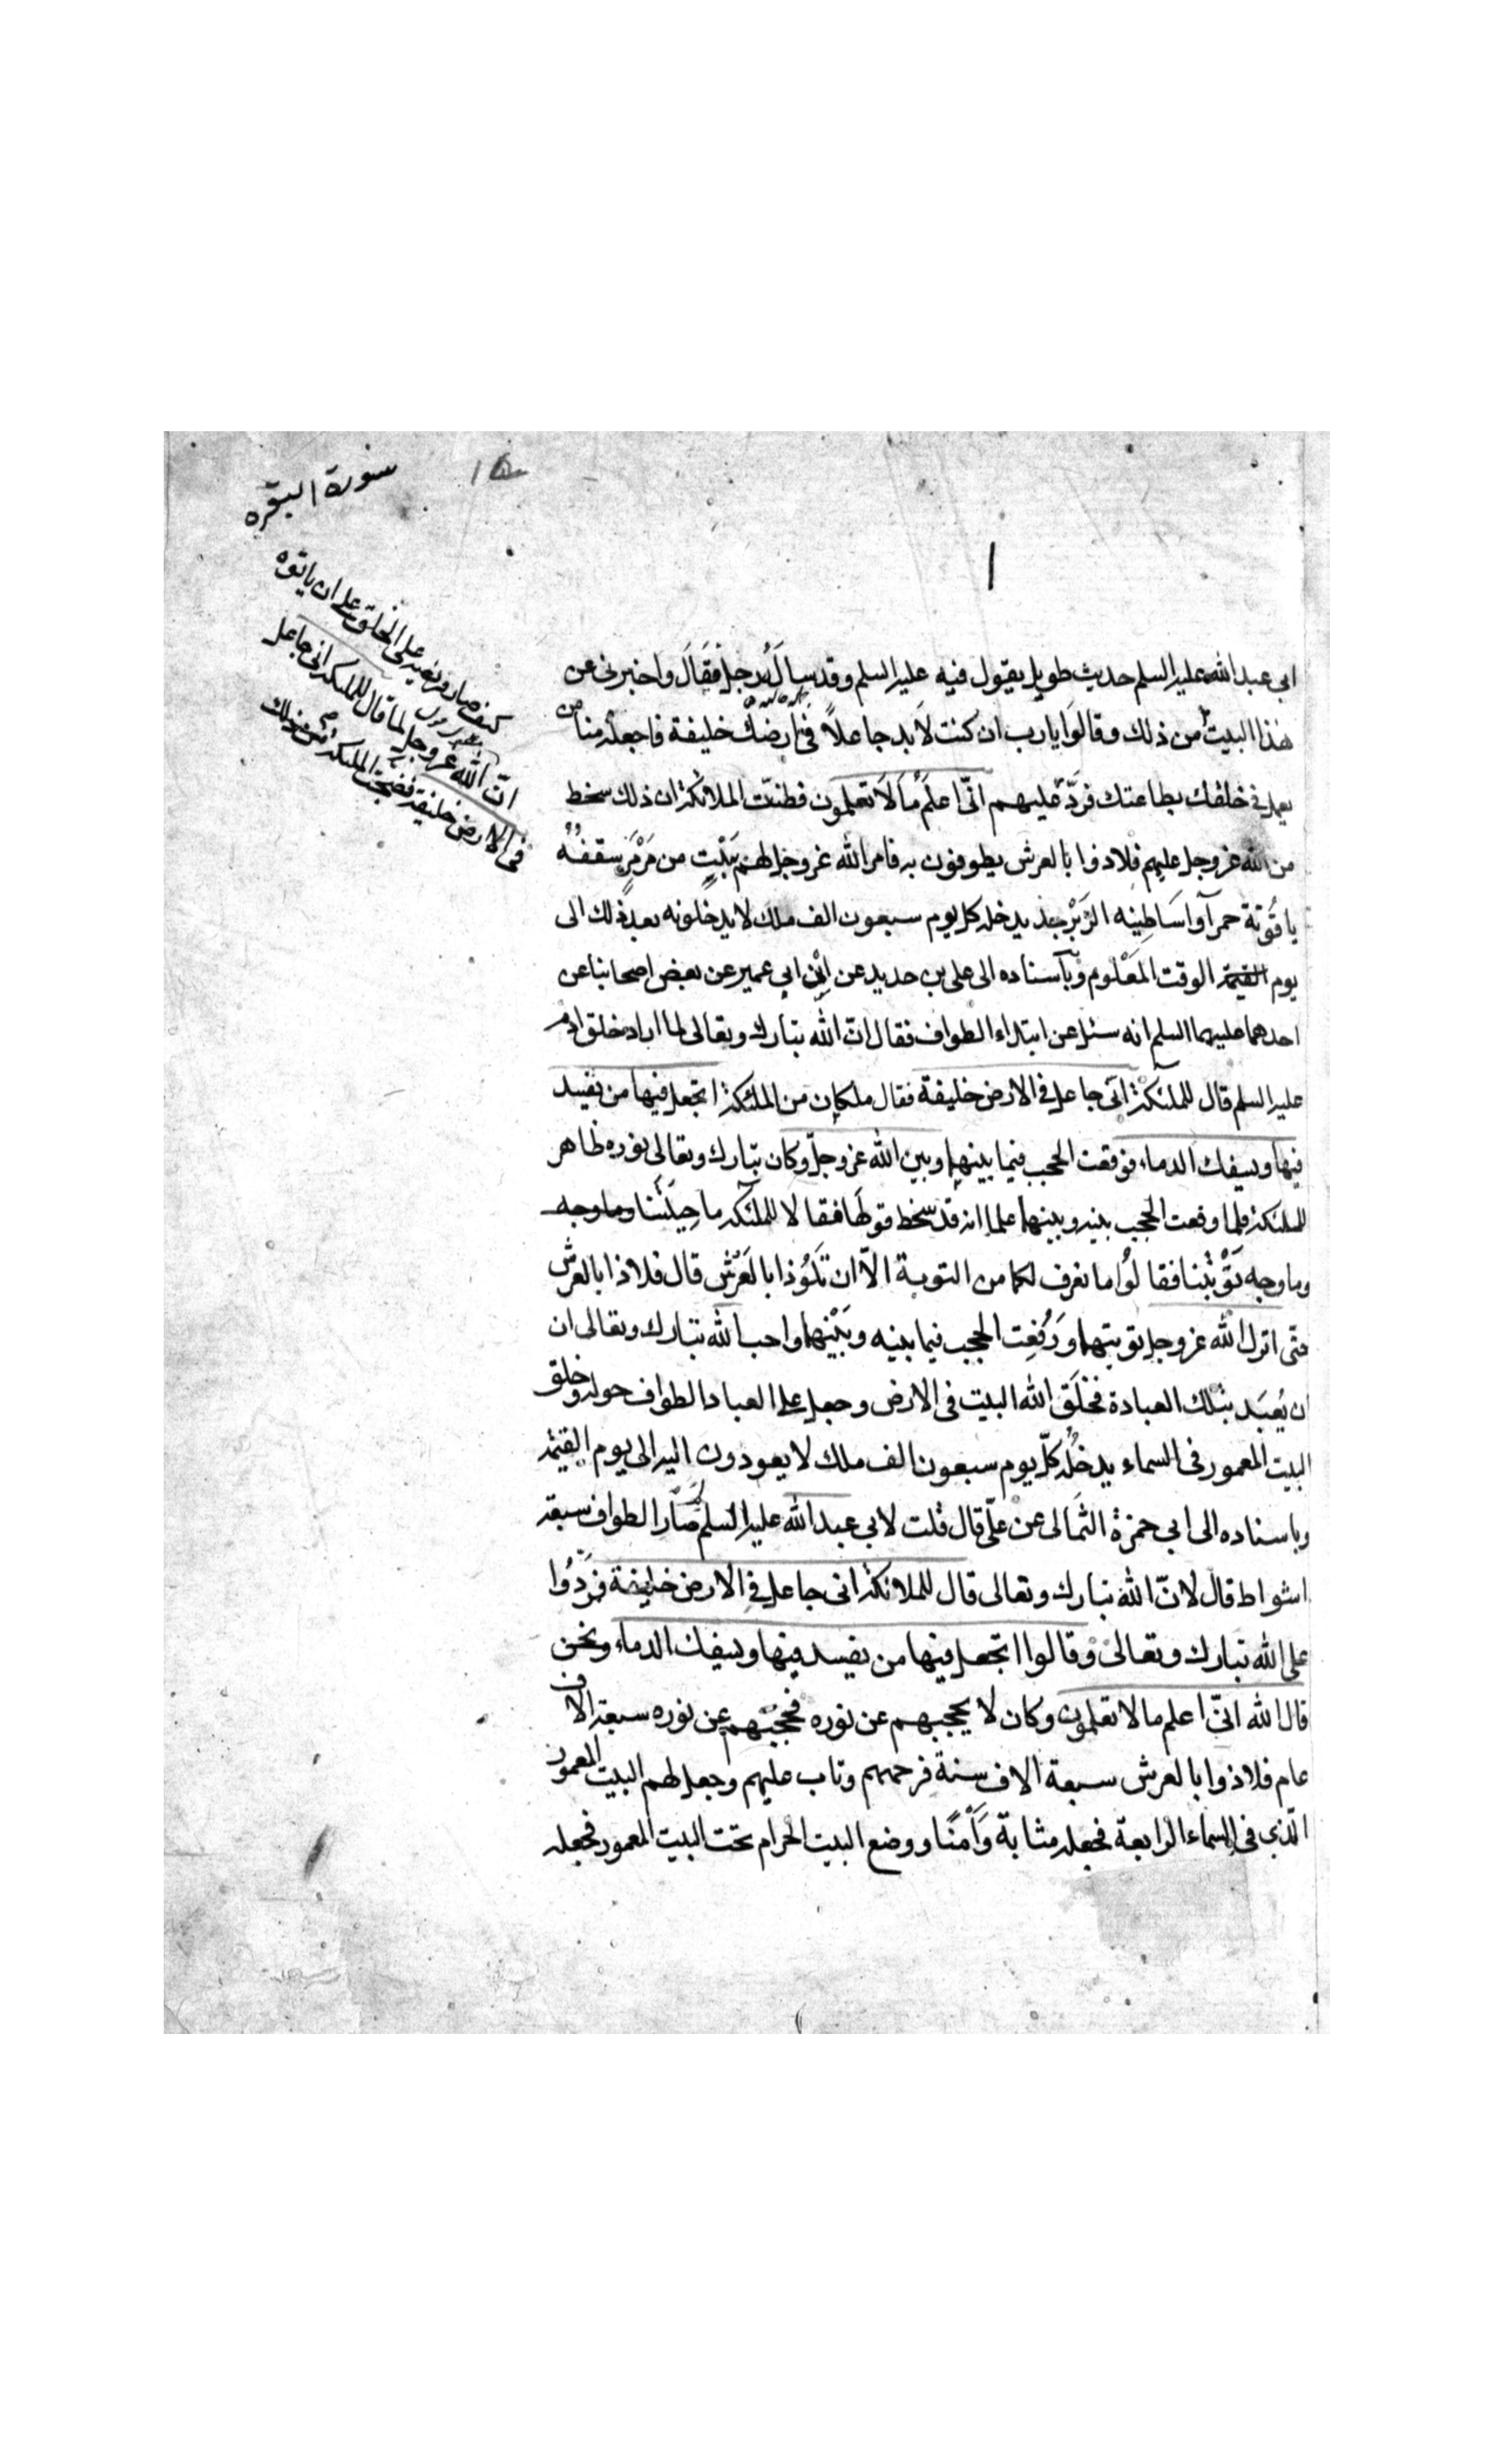 سورة البقره
١٥
١
ابى عبد الله عليه السلم حديث طويل يقول فيه عليه السلم وقد سأله رجل فقال واخبرنى عن
هذا البيت
كيف صار فريضة على الخلق على ان ياتوه
انّ الله عز وجل لما قال للملئكة انى جاعل
فى الارض خليفة فضجت الملئكة من ذلك
من ذلك وقالوا يا رب ان كنت لا بد جاعلاً فى ارضك خليفة فاجعله منا من
يعمل فى خلقك بطاعتك فردّ عليهم انّى اعلم ما لا تعلمون فظنّت الملائكة ان ذلك سخط
من الله عز وجل عليهم فلاذوا بالعرش يطوفون به فامر الله عز وجل لهم ببيت من مرمر سقفه
ياقوتة حمرآ واساطينه الزبرجد يدخله كل يوم سبعون الف ملك لا يدخلونه بعد ذلك الى
يوم القيمة الوقت المعلوم وبآسناده الى على بن حديد عن ابن ابى عمير عن بعض اصحابنا عن
احدهما عليهما السلم انه سئل عن ابتداء الطواف فقال انّ الله تبارك وتعالى لما اراد خلق ادم
عليه السلم قال للملئكة انّى جاعل فى الارض خليفة فقال ملكان من الملئكة اتجعل فيها من يفسد
فيها ويسفك الدماء فوقعت الحجب فيما بينهما وبين الله عز وجلّ وكان تبارك وتعالى نوره ظاهر
للملئكة فلما وقعت الحجب بينه وبينهما علما انه قد سخط قولهما فقالا للملئكة ما حيلتنا وما وجه
وما وجه توبتنا فقالوا ما نعرف لكما من التوبة الاّ ان تلوذا بالعرش قال فلاذا بالعرش
حتّى انزل الله عز وجل توبتهما ورفعت الحجب فيما بينه وبينهما واحب الله تبارك وتعالى ان
ان يعبد بتلك العبادة فخلق الله البيت فى الارض وجعل على العباد الطواف حوله وخلق
البيت المعمور فى السماء يدخله كلّ يوم سبعون الف ملك لا يعودون اليه الى يوم القيمة
وباسناده الى ابى حمزة الثمالى عن علىّ قال قلت لابى عبد الله عليه السلم صار الطواف سبعة
اشواط قال لانّ الله تبارك وتعالى قال للملائكة انى جاعل فى الارض خليفة فردّوا
على الله تبارك وتعالى وقالوا اتجعل فيها من يفسد فيها ويسفك الدماء ونحن
قال الله انّى اعلم ما لا تعلمون وكان لا يحجبهم عن نوره فحجبهم عن نوره سبعة الاف
عام فلاذوا بالعرش سبعة الاف سنة فرحمهم وتاب عليهم وجعل لهم البيت المعمور
الّذى فى السماء الرابعة فجعله مثابة وأمنًا ووضع البيت الحرام تحت البيت المعمور فجعله